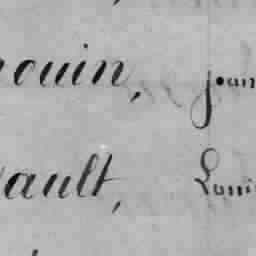 ouin, jean
ault, Loui